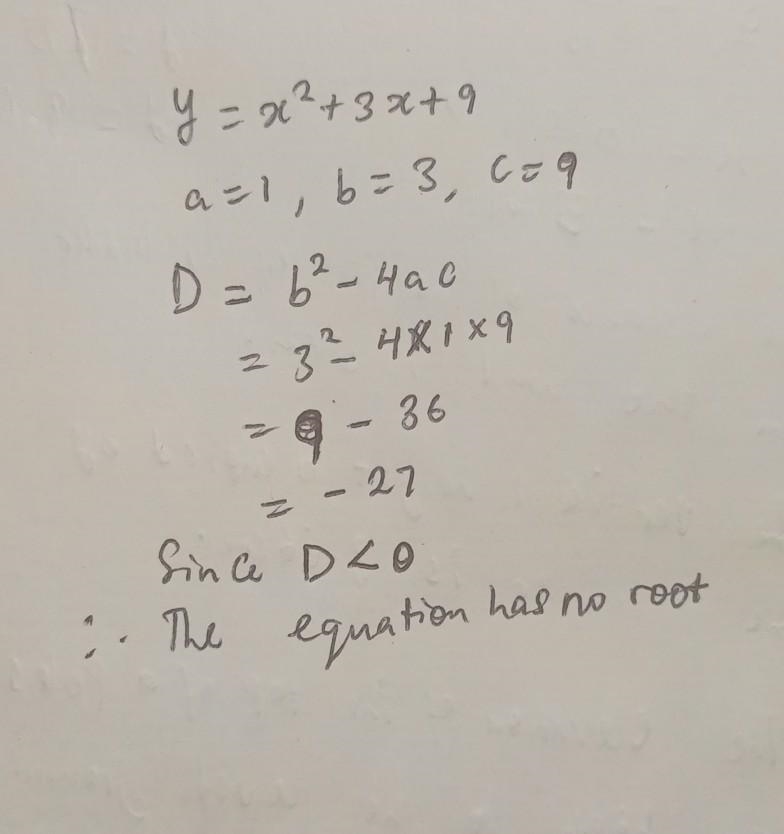 y = x² + 3x + 9
a = 1, b = 3, c = 9
D = b² - 4ac
= 3² - 4×1×9
= 9 - 36
= - 27
Since D < 0
∴ The equation has no root